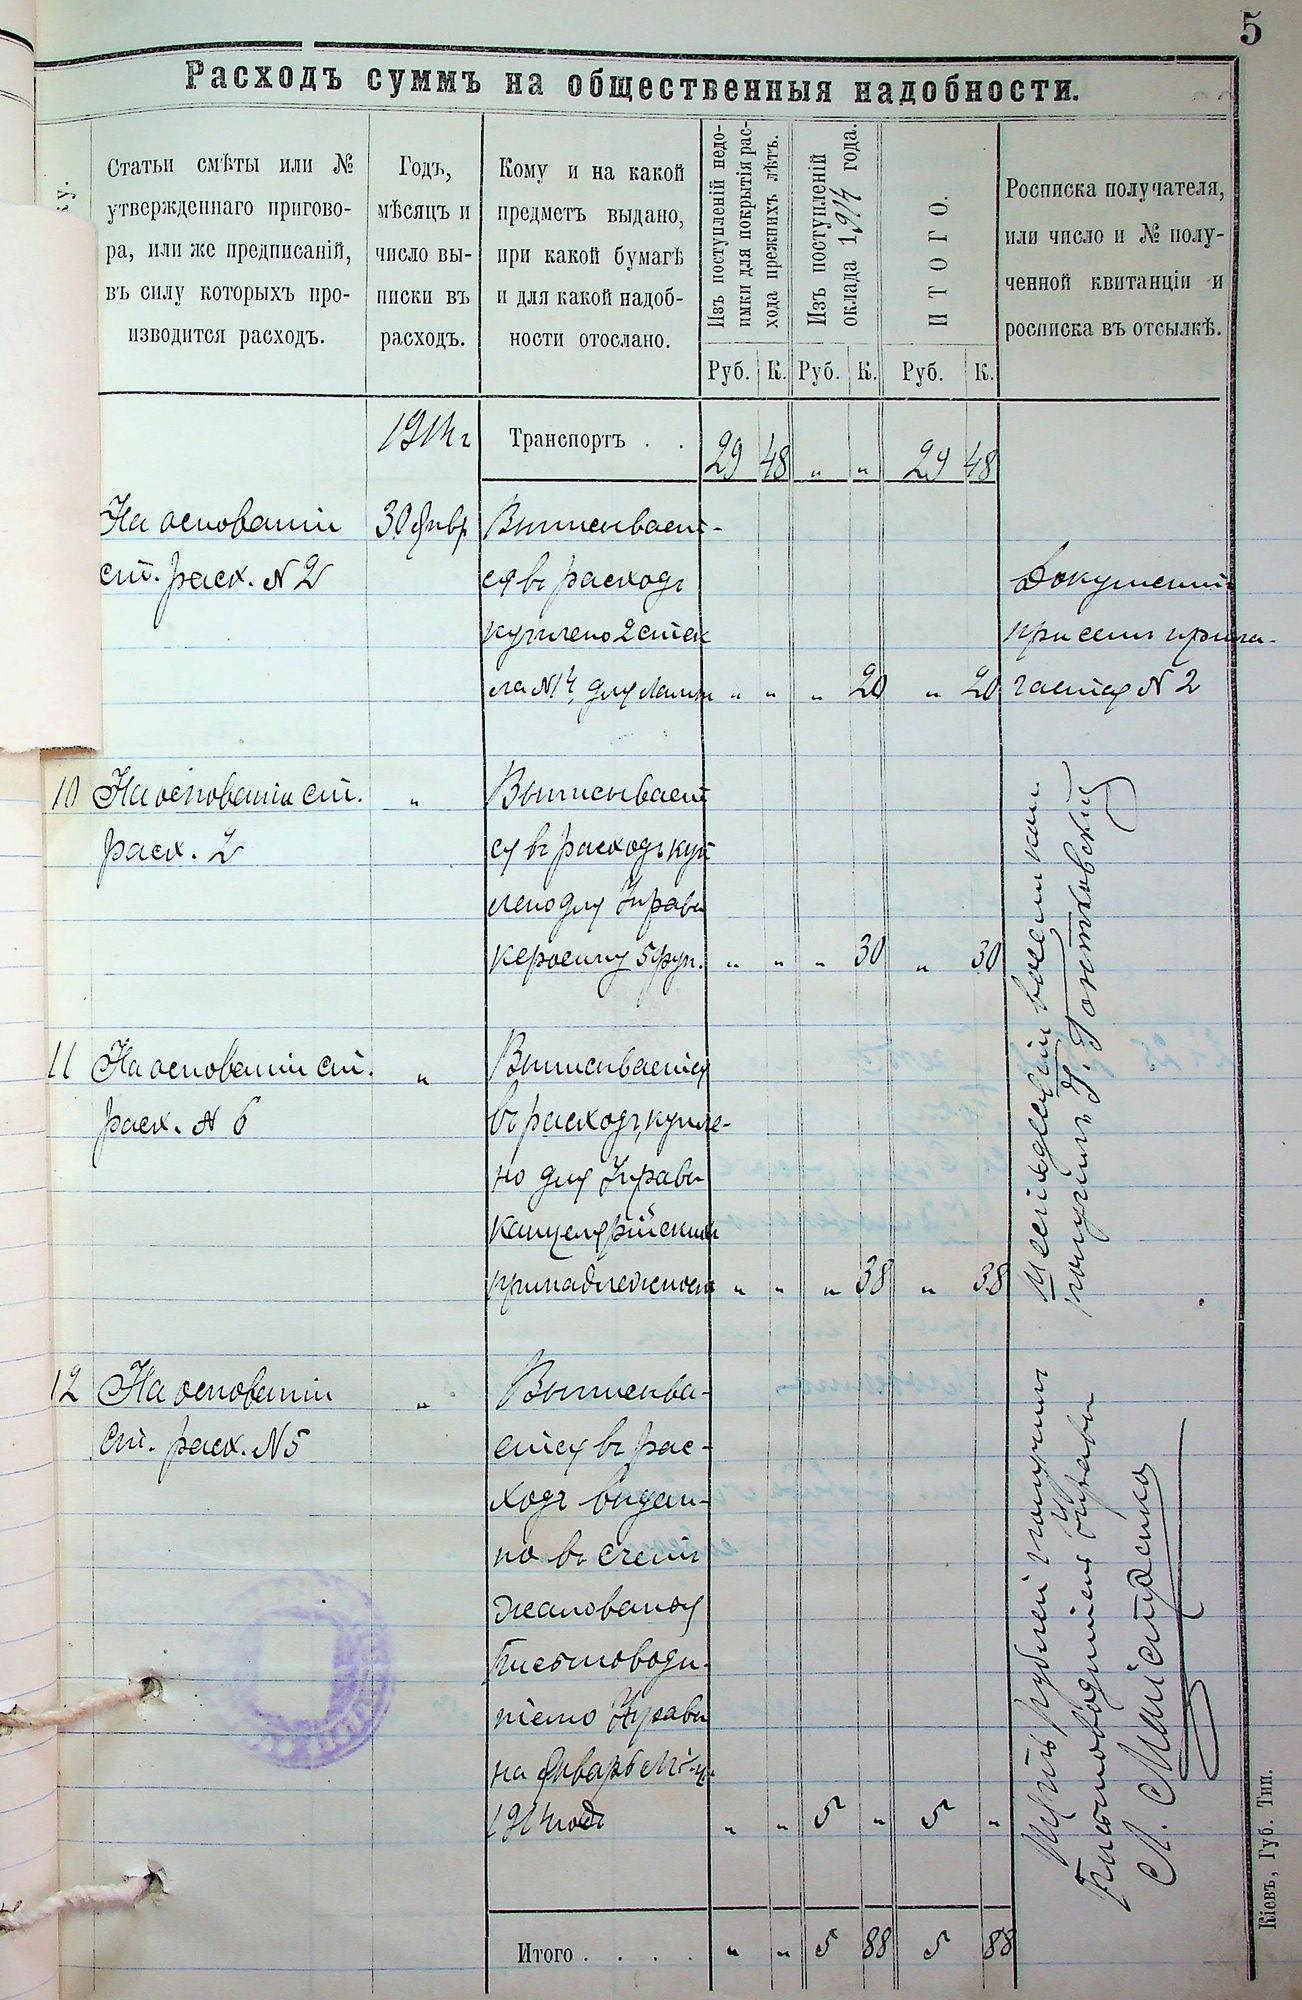 5
Расходъ суммъ на общественныя надобности.
Статьи смѣты или №
утвержденнаго пригово-
ра, или же предписаній,
въ силу которыхъ про-
изводится расходъ.
Годъ,
мѣсяцъ и
число вы-
писки въ
расходъ.
Кому и на какой
предметъ выдано,
при какой бумагѣ
и для какой надоб-
ности отослано.
Изъ поступленій недо-
имки для покрытія рас-
хода прежнихъ лѣтъ.
Изъ поступленій
оклада 1914 года.
ИТОГО.
Росписка получателя,
или число и № полу-
ченной квитанціи и
росписка въ отсылкѣ.
Руб. К. Руб. К. Руб. К.
1914 г Транспортъ . . 29 48 " " 29 48
На основаніи
ст. расх. № 2
30 Янвр
Выписывает-
ся въ расходъ
куплено 2 стек
ла № 14, для лампы " " " 20 " 20
Документ
при семъ прила-
гается № 2
10 На основаніи ст.
расх. 2
"
Выписывает
ся въ расходъ куп
лено для Управы
керосину 5 фун. " " " 30 " 30
11 На основаніи ст.
расх. № 6
"
Выписывается
въ расходъ, купле-
но для Управы
канцелярійскихъ
принадлежност " " " 38 " 38
Шестьдесят восемь коп
получилъ
12 На основаніи
ст. расх. № 5
"
Выписыва-
ется въ рас-
ходъ выдан-
но въ счетъ
жалованья
Письмоводи-
телю Управы
на Январь м-ц
1914 года " " 5 " 5 "
Пять рублей получилъ
Письмоводитель Управы
Итого . . . . " " 5 88 5 88
Кіевъ, Губ. Тип.